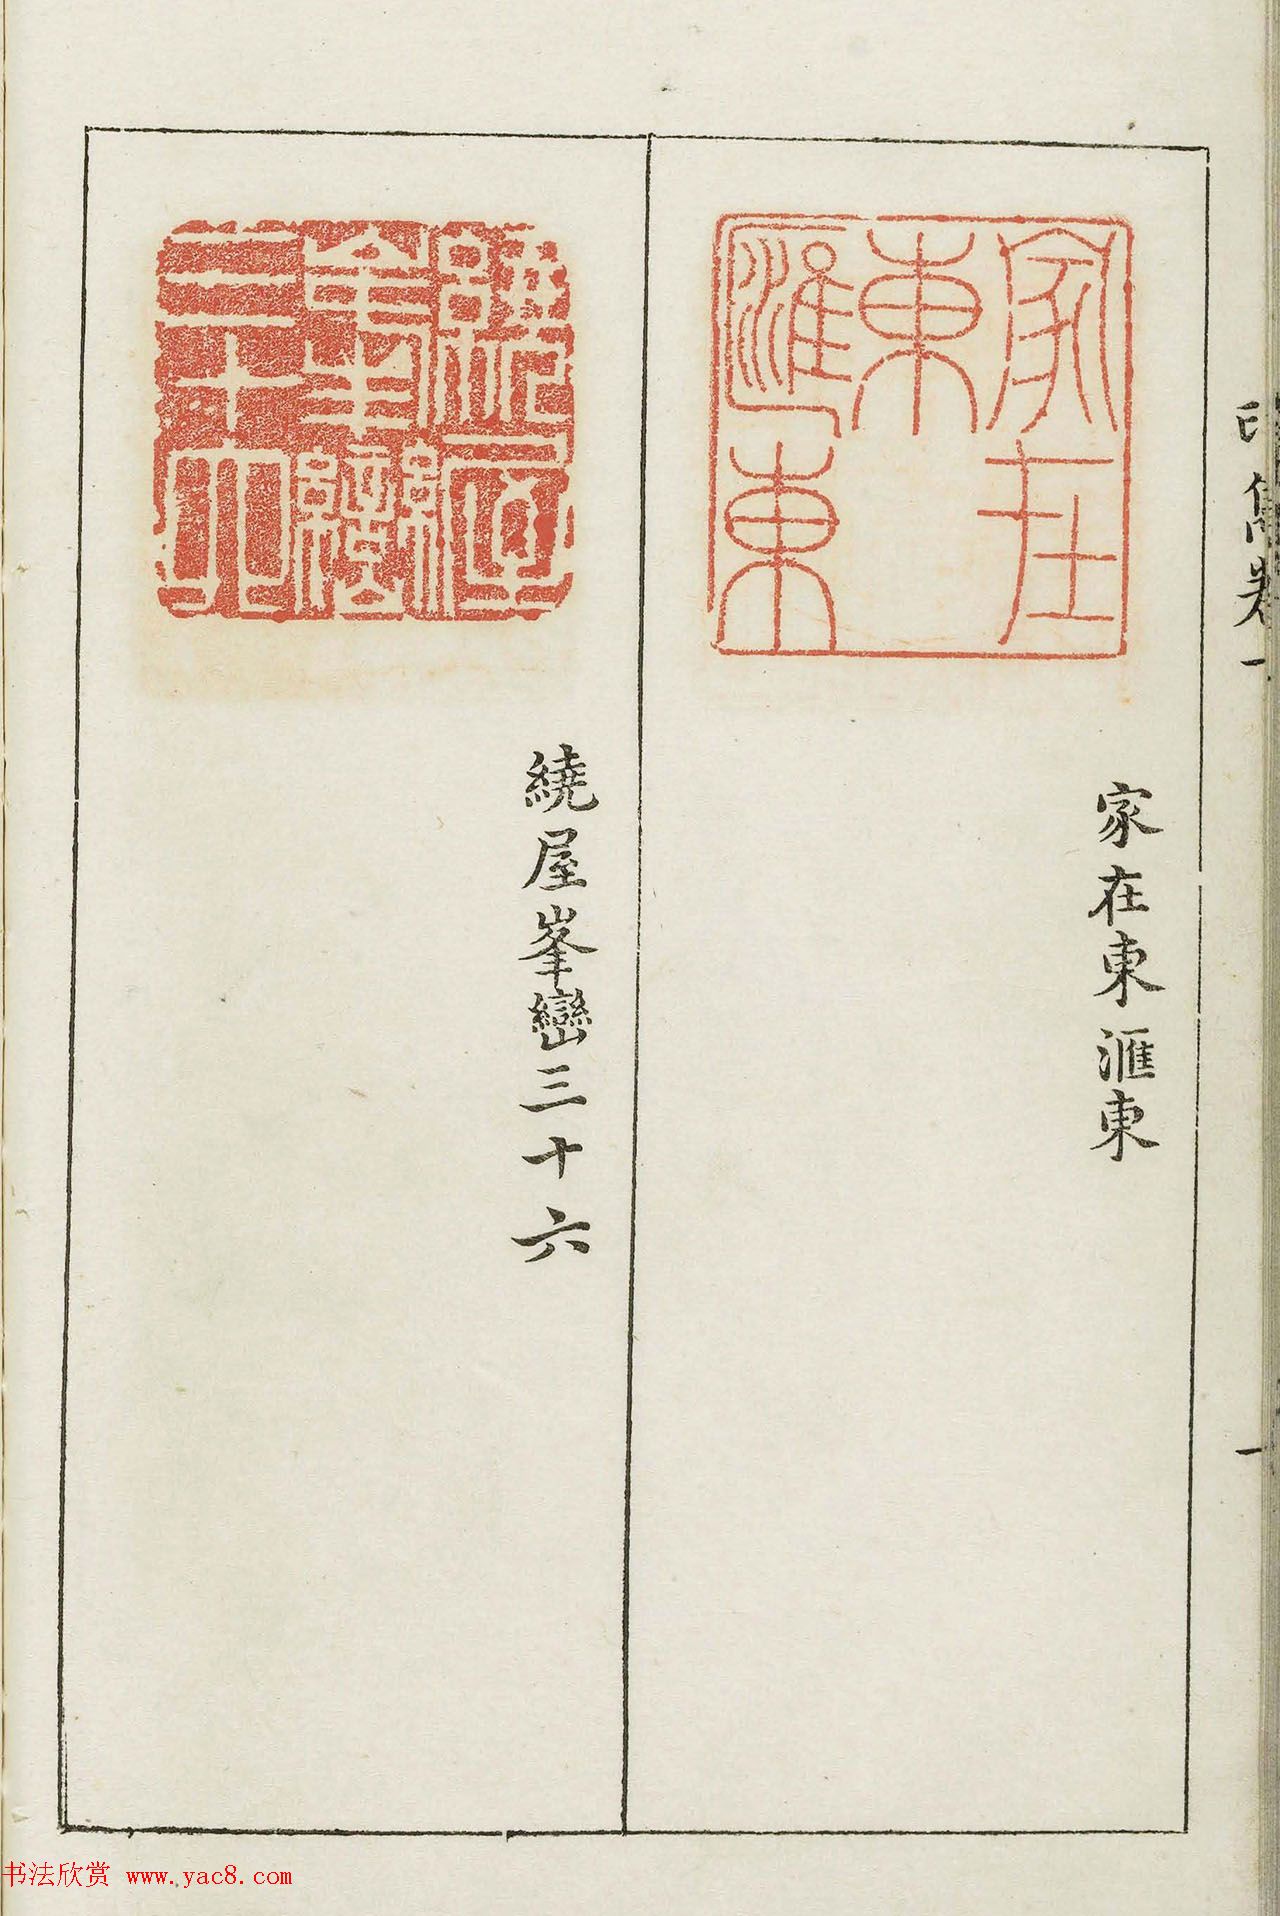 家在東匯東
家在東滙東
繞屋峯巒三十六
繞屋峯巒三十六
印雋卷一
一
书法欣赏 www.yac8.com